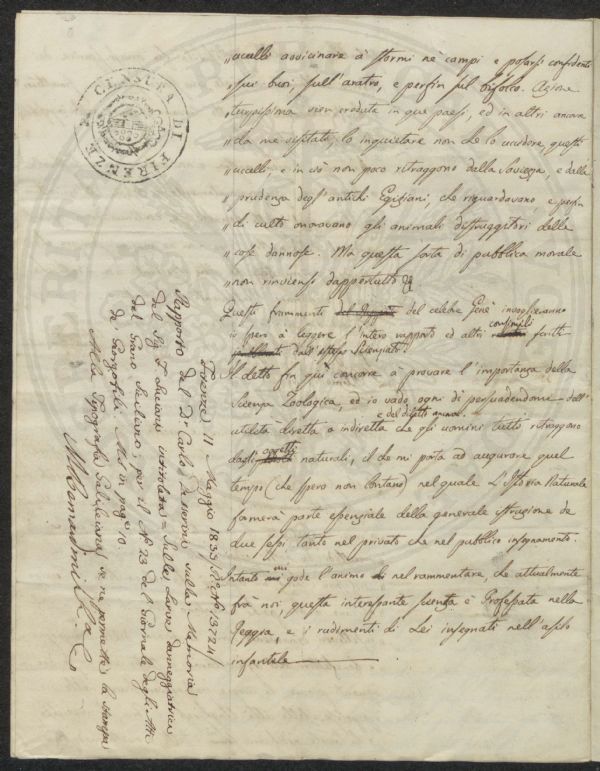 CENSURA DI FIRENZE
„ uccelli avvicinare à stormi nè campi e posarsi confidenti
„ sui buoi sull'aratro, e perfin sul bifolco. Azione
„ turpissima vien creduta in que paesi, ed in altri ancora
„ da me visitati, lo inquietare non che lo uccidere questi
„ uccelli, e in ciò non poco ritraggono dalla saviezza, e dalla
„ prudenza degl'antichi Egiziani, che risguardavano, e perfin
„ di culto onoravano gli animali distruggitori delle
„ cose dannose. Ma questa sorta di pubblica morale
„ non rinviensi dappertutto „
Questi frammenti del celebre Gené invoglieranno
io spero à leggere l'intero rapporto ed altri consimili scritti
pubblicati dall'istesso Scienziato.
Il detto fin quì concorre à provare l'importanza della
Scienza Zoologica, ed io vado ogni dì persuadendomi dell'
utilità diretta o indiretta e del diletto che gli uomini tutti ritraggono
dagli oggetti naturali, il che mi porta ad augurare quel
tempo (che spero non lontano) nel quale L'Istoria Naturale
formerà parte essenziale della generale istruzione de
due sessi tanto nel privato che nel pubblico insegnamento.
Intanto mi gode l'animo di nel rammentare, che attualmente
frà noi questa interessante scienza è Professata nella
Reggia, e i rudimenti di Lei insegnati nell'asilo
infantile
Firenze 11 Maggio 1835
Rapporto del Dr Carlo Passerini sulla Memoria
del Sigr F. Luciani intitolata = Sulle Larve danneggiatrici
del Grano Siciliano; per il No 23 del Giornale degli Atti
de' Georgofili. Ms in pag.e 10
Alla Tipografia Galileiana, se ne permette la stampa